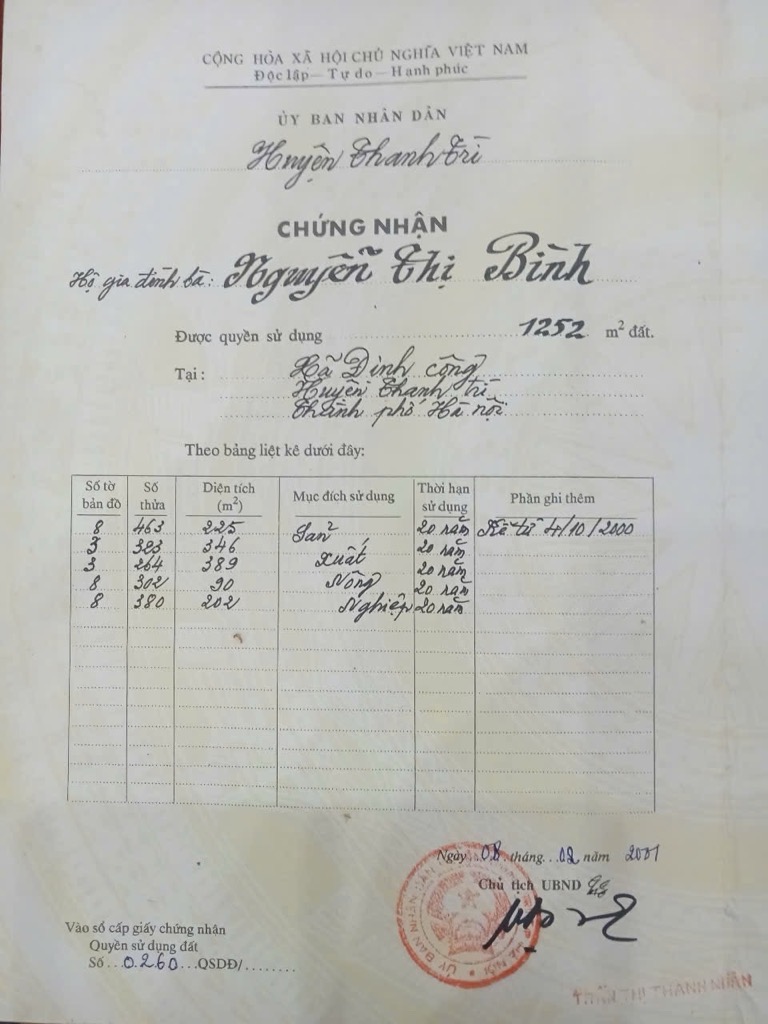 CỘNG HÒA XÃ HỘI CHỦ NGHĨA VIỆT NAM
Độc lập — Tự do — Hạnh phúc
ỦY BAN NHÂN DÂN
Huyện Thanh Trì
CHỨNG NHẬN
Hộ gia đình bà: Nguyễn Thị Bình
Được quyền sử dụng 1252 m² đất.
Tại: Xã Định công
Huyện Thanh trì
Thành phố Hà nội
Theo bảng liệt kê dưới đây:
Số tờ bản đồ Số thửa Diện tích (m²) Mục đích sử dụng Thời hạn sử dụng Phần ghi thêm
8 463 225 Sản 20 năm Kể từ 4/10/2000
3 323 346 xuất 20 năm
3 264 389 20 năm
8 302 90 Nông 20 năm
8 380 202 Nghiệp 20 năm
Ngày 08 tháng 02 năm 2001
Chủ tịch UBND
Vào sổ cấp giấy chứng nhận
Quyền sử dụng đất
Số 0.260 QSDĐ/
ỦY BAN NHÂN DÂN
HÀ NỘI
TRẦN THỊ THANH NHÀN